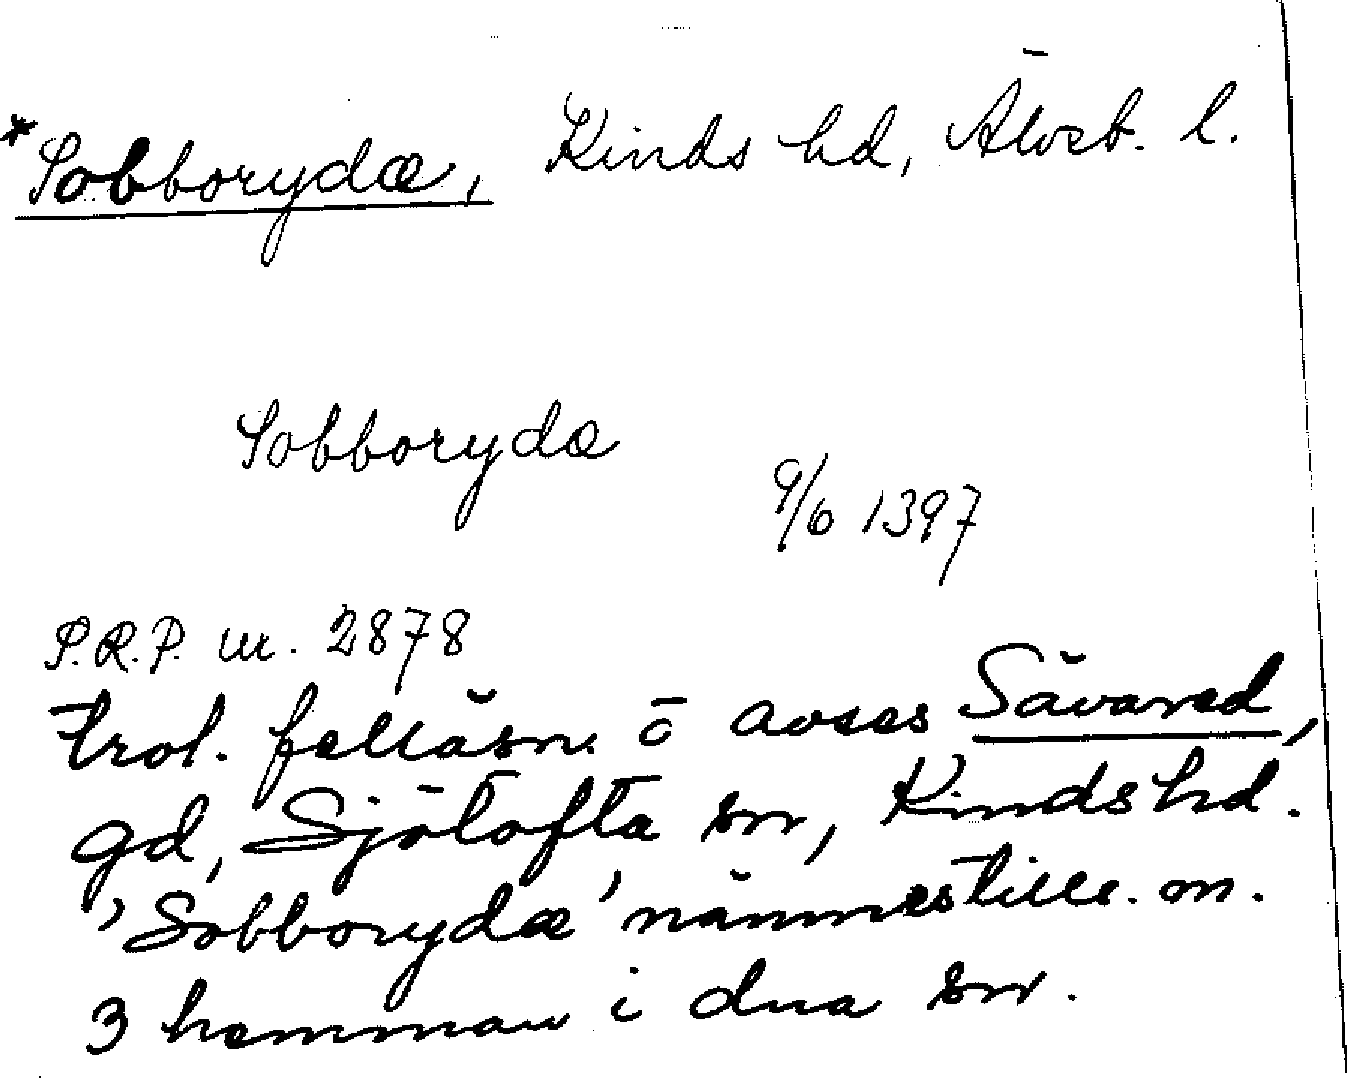 *Sobborydæ, Kinds hd, Älvsb. l.
Sobborydæ
9/6 1397
P.R.P. nr. 2878
trol. felläsn. o avses Sävared,
gd, Sjötofta sn, Kinds hd.
'Sobborydæ' nämnes tills. m.
3 hemman i dna sn.